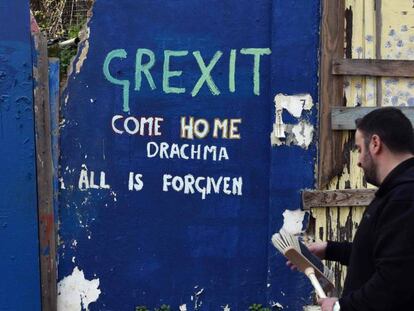 GREXIT
COME HOME
DRACHMA
ALL IS FORGIVEN